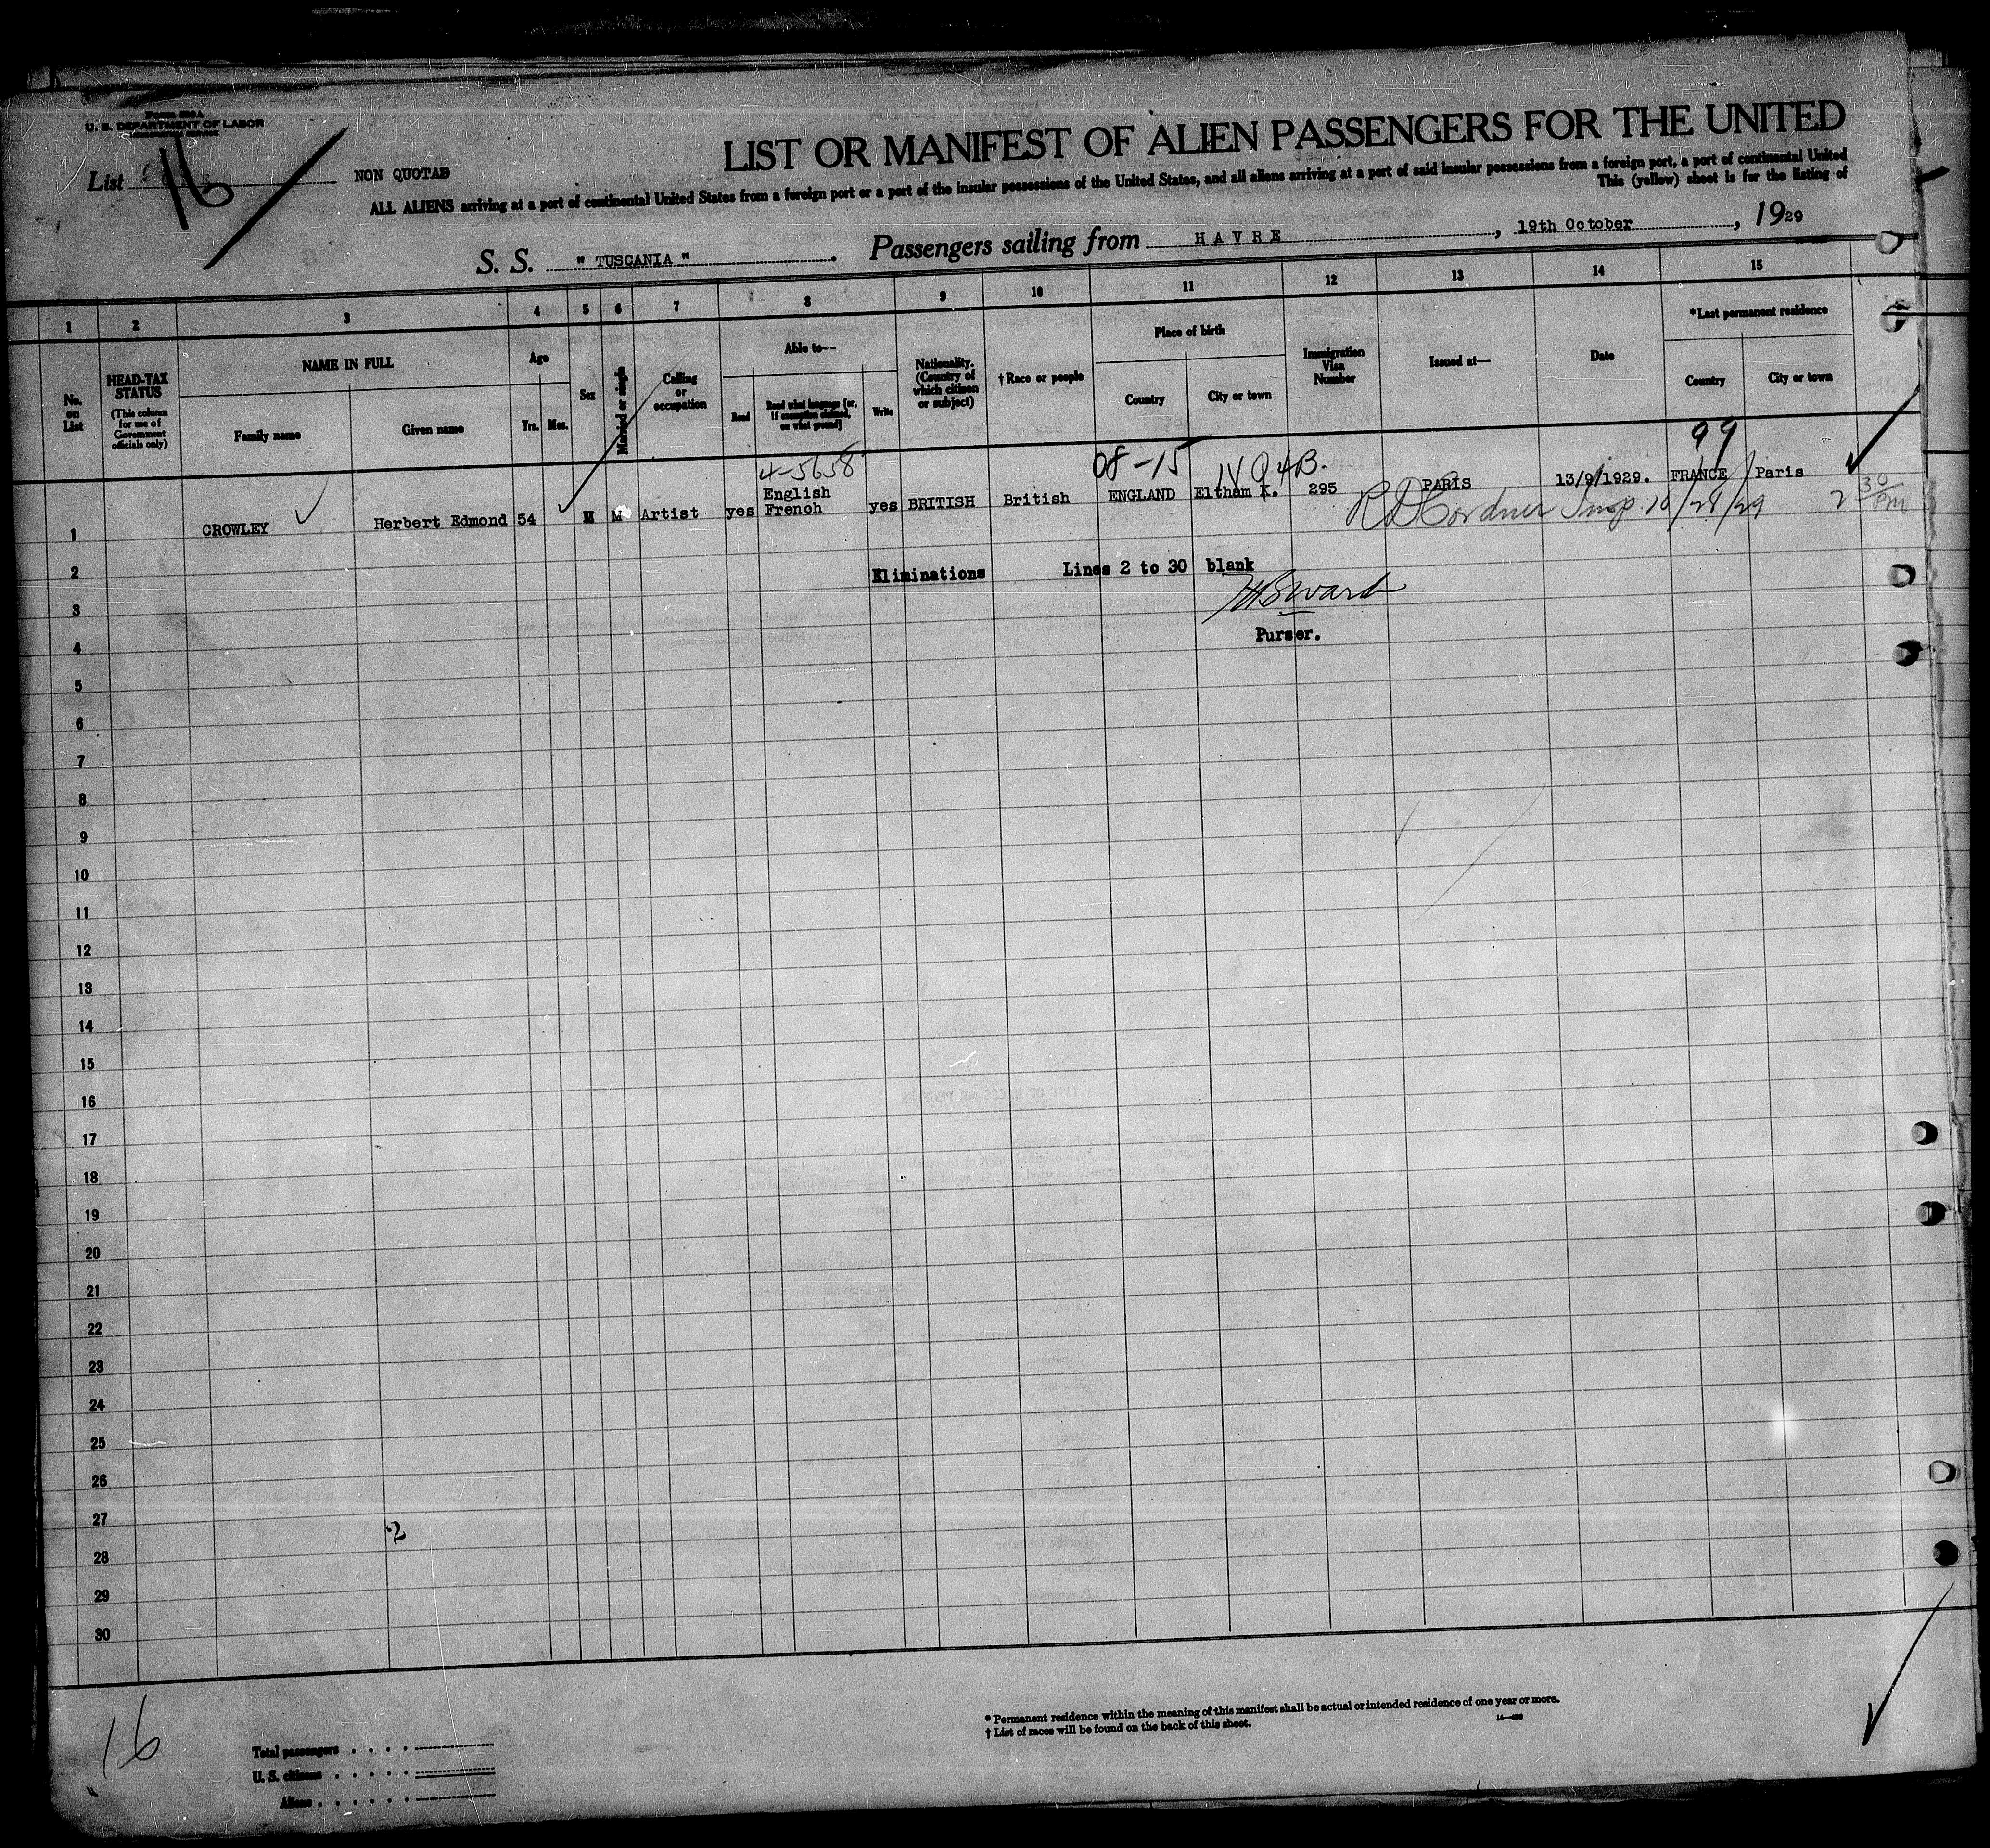 Form 500 A
U. S. DEPARTMENT OF LABOR
IMMIGRATION SERVICE
List 16
NON QUOTAB
LIST OR MANIFEST OF ALIEN PASSENGERS FOR THE UNITED
ALL ALIENS arriving at a port of continental United States from a foreign port or a port of the insular possessions of the United States, and all aliens arriving at a port of said insular possessions from a foreign port, a port of continental United
This (yellow) sheet is for the listing of
S. S. " TUSCANIA ". Passengers sailing from HAVRE, 19th October, 1929
1 2 3 4 5 6 7 8 9 10 11 12 13 14 15
No. on List
HEAD-TAX STATUS (This column for use of Government officials only)
NAME IN FULL
Family name
Given name
Age
Yrs. Mos.
Sex
Married or single
Calling or occupation
Able to—
Read
Read what language [or, if exemption claimed, on what ground]
Write
Nationality. (Country of which citizen or subject)
†Race or people
Place of birth
Country
City or town
Immigration Visa Number
Issued at—
Date
*Last permanent residence
Country
City or town
4-5658
08-15
99
1 CROWLEY Herbert Edmond 54 M M Artist yes English French yes BRITISH British ENGLAND Eltham K. 295 PARIS 13/9/1929. FRANCE Paris
Insp. 10/28/29
2 30 PM
2 Eliminations Lines 2 to 30 blank
3
Purser.
4
5
6
7
8
9
10
11
12
13
14
15
16
17
18
19
20
21
22
23
24
25
26
27
2
28
29
30
16
* Permanent residence within the meaning of this manifest shall be actual or intended residence of one year or more.
† List of races will be found on the back of this sheet.
Total passengers . . . .
U. S. citizens . . . . .
Aliens . . . . . .